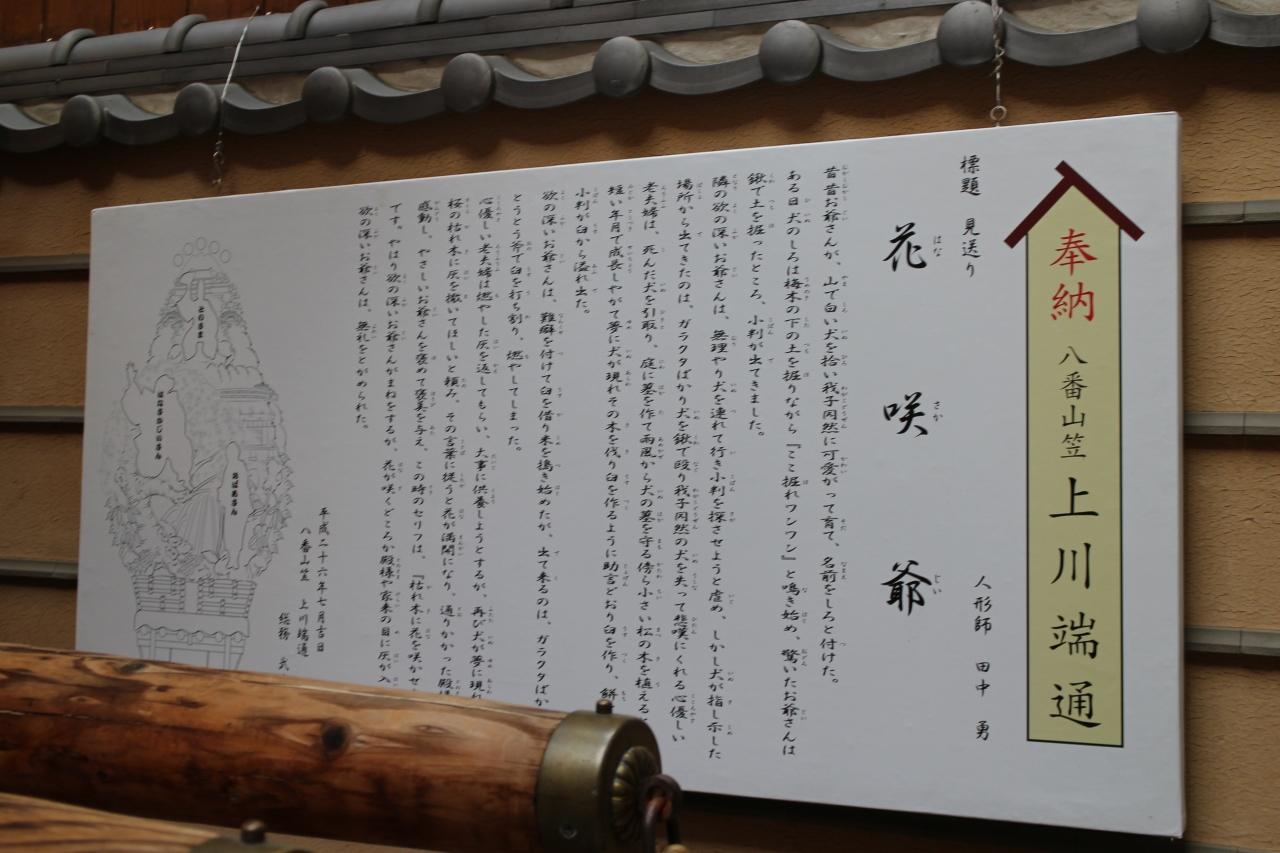 奉納 八番山笠 上川端通
標題 見送り 人形師 田中 勇
花咲爺
はな さか じい
昔昔お爺さんが、山で白い犬を拾い我子同然に可愛がって育て、名前をしろと付けた。
ある日犬のしろは梅木の下の土を掘りながら『ここ掘れワンワン』と鳴き始め、驚いたお爺さんは
鍬で土を掘ったところ、小判が出てきました。
隣の欲の深いお爺さんは、無理やり犬を連れて行き小判を探させようと虐め、しかし犬が指し示した
場所から出てきたのは、ガラクタばかり犬を鍬で殴り我子同然の犬を失って悲嘆にくれる心優しい
老夫婦は、死んだ犬を引取り、庭に墓を作て雨風から犬の墓を守る傍ら小さい松の木を植える
短い年月で成長しやがて夢に犬が現れその木を伐り臼を作るように助言どおり臼を作り、餅
小判が臼から溢れ出た。
欲の深いお爺さんは、難癖を付けて臼を借り来を搗き始めたが、出て来るのは、ガラクタばか
とうとう斧で臼を打ち割り、燃やしてしまった。
心優しい老夫婦は燃やした灰を返してもらい、大事に供養しようとするが、再び犬が夢に現れ
桜の枯れ木に灰を撒いてほしいと頼み、その言葉に従うと花が満開になり、通りかかった殿様
感動し、やさしいお爺さんを褒めて褒美を与え、この時のセリフは、『枯れ木に花を咲かせ
です。やはり欲の深いお爺さんがまねをするが、花が咲くどころか殿様や家来の目に灰が入
欲の深いお爺さんは、無礼をとがめられた。
平成二十六年七月吉日
八番山笠 上川端通
総務 武
とのさま
はなさかじいさん
おばあさん